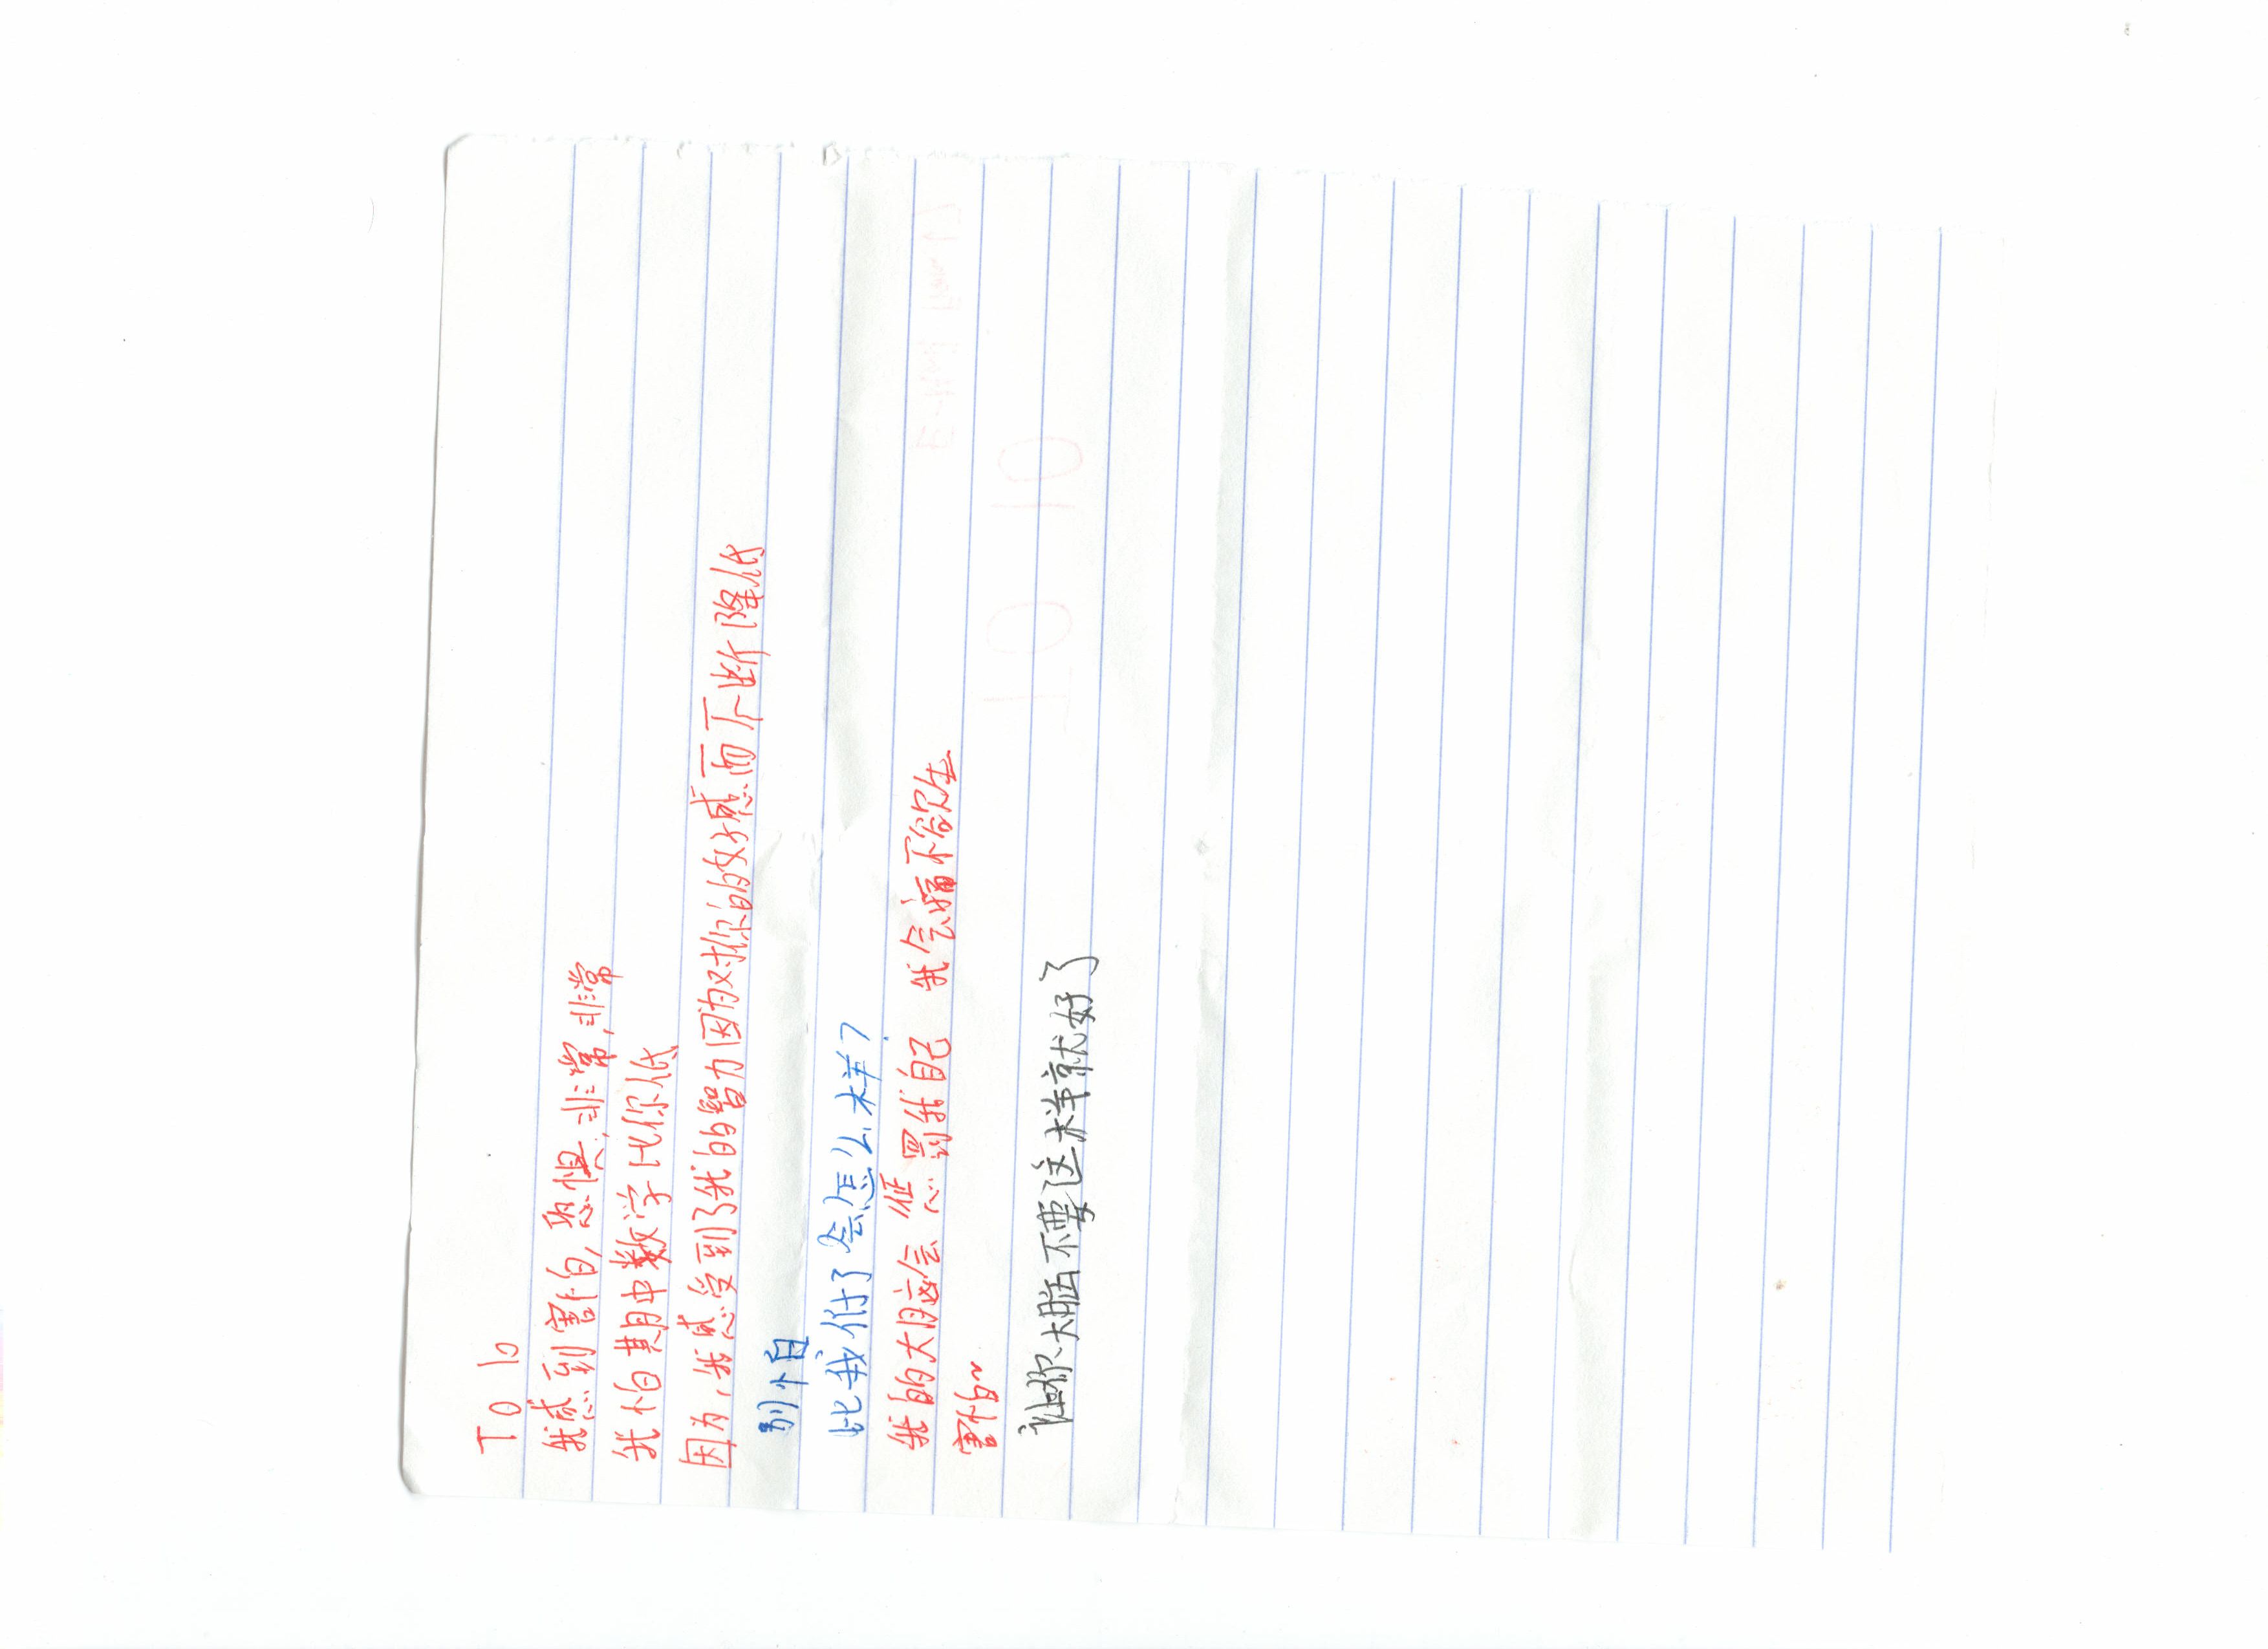 TO 10
我感到害怕,恐惧,非常,非常
我怕期中数学比你低
因为,我感受到了我的智力因为对你的好感而不断降低
别怕
比我低了会怎么样?
我的大脑会 惩罚我自己 我会痛不欲生
害怕~
让你大脑不要这样就好了
TO 10